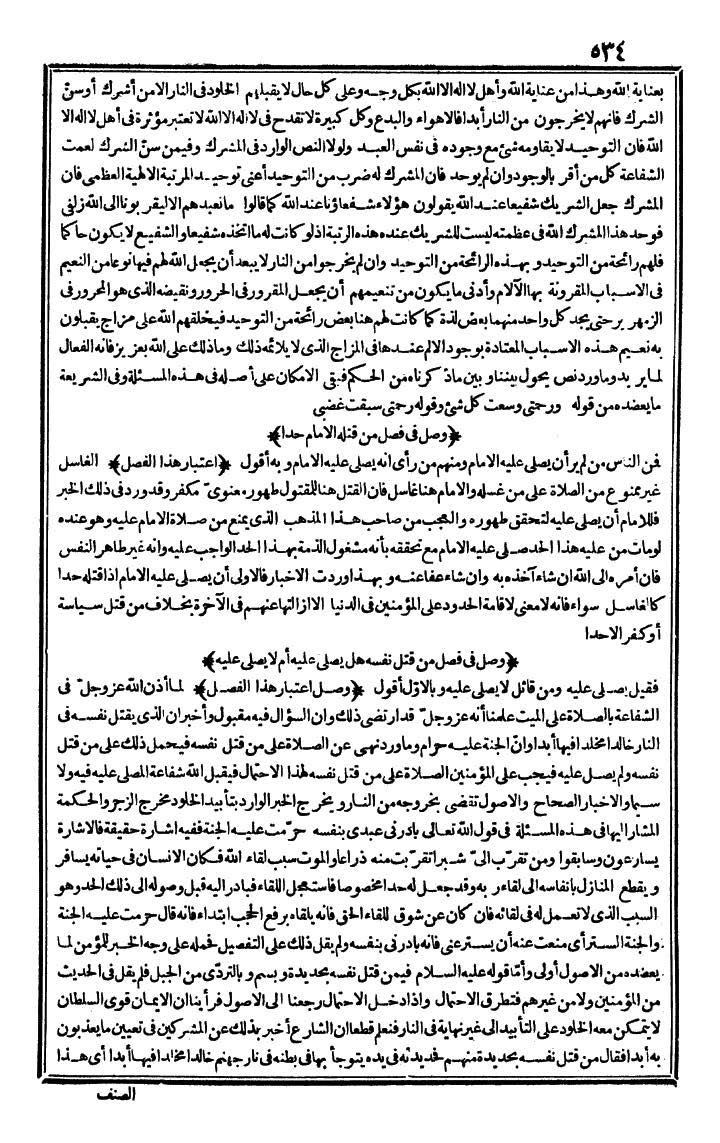 ٥٣٤
بعناية الله وهذا من عناية الله وأهل لا اله الا الله بكل وجه وعلى كل حال لا يقبلهم الخلود فى النار الا من أشرك أوسنّ
الشرك فانهم لا يخرجون من النار أبدا فالاهواء والبدع وكل كبيرة لا تقدح فى لا اله الا الله لا تعتبر مؤثرة فى أهل لا اله الا
الله فان التوحيد لا يقاومه شئ مع وجوده فى نفس العبد ولولا النص الوارد فى المشرك وفيمن سنّ الشرك لعمت
الشفاعة كل من أقر بالوجود وان لم يوحد فان المشرك له ضرب من التوحيد أعنى توحيد المرتبة الالهية العظمى فان
المشرك جعل الشريك شفيعا عند الله يقولون هؤلاء شفعاؤنا عند الله كما قالوا مانعبدهم الا ليقربونا الى الله زلفى
فوحد هذا المشرك الله فى عظمته ليست للشريك عنده هذه الرتبة اذلو كانت له ما اتخذه شفيعا والشفيع لا يكون حاكما
فلهم رائحة من التوحيد وبهذه الرائحة من التوحيد وان لم يخرجوا من النار لا يبعد أن يجعل الله لهم فيها نوعا من النعيم
فى الاسباب المقرونة بها الآلام وأدنى ما يكون من تنعيمهم أن يجعل المقرور فى الحرور ونقيضه الذى هو المحرور فى
الزمهرير حتى يجد كل واحد منهما بعض لذة كما كانت لهم هنا بعض رائحة من التوحيد فيخلقهم الله على مزاج يقبلون
به نعيم هذه الاسباب المعتادة بوجود الالم عندها فى المزاج الذى لا يلائمه ذلك وماذلك على الله بعزيز فانه الفعال
لما يريد وماورد نص يحول بيننا وبين ماذكرناه من الحكم فبقى الامكان على أصله فى هذه المسئلة وفى الشريعة
ما يعضده من قوله ورحمتى وسعت كل شئ وقوله رحمتى سبقت غضبى
﴿وصل فى فصل من قتله الامام حدا﴾
فمن الناس من لم يرأن يصلى عليه الامام ومنهم من رأى انه يصلى عليه الامام وبه أقول ﴿اعتبار هذا الفصل﴾ الغاسل
غير ممنوع من الصلاة على من غسله والامام هنا غاسل فان القتل هنا للمقتول طهور معنوىّ مكفر وقدورد فى ذلك الخبر
فللامام أن يصلى عليه لتحقق طهوره والعجب من صاحب هذا المذهب الذى يمنع من صلاة الامام عليه وهو عنده
لومات من عليه هذا الحد صلى عليه الامام مع تحققه بأنه مشغول الذمة بهذا الحد الواجب عليه وانه غير طاهر النفس
فان أمره الى الله ان شاء آخذه به وان شاء عفا عنه وبهذا وردت الاخبار فالاولى أن يصلى عليه الامام اذا قتله حدا
كالغاسل سواء فانه لامعنى لاقامة الحدود على المؤمنين فى الدنيا الا ازالتها عنهم فى الآخرة بخلاف من قتل سياسة
أو كفر الاحدا
﴿وصل فى فصل من قتل نفسه هل يصلى عليه أم لا يصلى عليه﴾
فقيل يصلى عليه ومن قائل لا يصلى عليه وبالاوّل أقول ﴿وصل اعتبار هذا الفصل﴾ لما أذن الله عزوجلّ فى
الشفاعة بالصلاة على الميت علمنا أنه عزوجلّ قدار تضى ذلك وان السؤال فيه مقبول وأخبران الذى يقتل نفسه فى
النار خالدا مخلدا فيها أبدا وانّ الجنة عليه حرام وماورد نهى عن الصلاة على من قتل نفسه فيحمل ذلك على من قتل
نفسه ولم يصل عليه فيجب على المؤمنين الصلاة على من قتل نفسه لهذا الاحتمال فيقبل الله شفاعة المصلى عليه فيه ولا
سيما والاخبار الصحاح والاصول تقضى بخروجه من النار ويخرج الخبر الوارد بتأبيد الخلود مخرج الزجر والحكمة
المشار اليها فى هذه المسئلة فى قول الله تعالى بادرنى عبدى بنفسه حرّمت عليه الجنة ففيه اشارة حقيقة فالاشارة
يسارعون وسابقوا ومن تقرّب الىّ شبرا تقرّبت منه ذراعا والموت سبب لقاء الله فكان الانسان فى حياته يسافر
ويقطع المنازل بانفاسه الى لقاء ربه وقد جعل له حدا مخصوصا فاستعجل اللقاء فبادر اليه قبل وصوله الى ذلك الحد وهو
السبب الذى لا تعمل له فى لقائه فان كان عن شوق للقاء الحق فانه يلقاه برفع الحجب ابتداء فانه قال حرمت عليه الجنة
والجنة الستر أى منعت عنه أن يستر عنى فانه بادرنى بنفسه ولم يقل ذلك على التفصيل فحمله على وجه الخبر للمؤمن لما
يعضده من الاصول أولى وأمّا قوله عليه السلام فيمن قتل نفسه بحديدة وبسم وبالتردّى من الجبل فلم يقل فى الحديث
من المؤمنين ولا من غيرهم فتطرق الاحتمال واذا دخل الاحتمال رجعنا الى الاصول فرأينا ان الايمان قوى السلطان
لا يتمكن معه الخلود على التأبيد الى غير نهاية فى النار فنعلم قطعا ان الشارع أخبر بذلك عن المشركين فى تعيين ما يعذبون
به أبدا فقال من قتل نفسه بحديدة منهم فحديدته فى يده يتوجأ بها فى بطنه فى نار جهنم خالدا مخلدا فيها أبدا أى هذا
الصنف